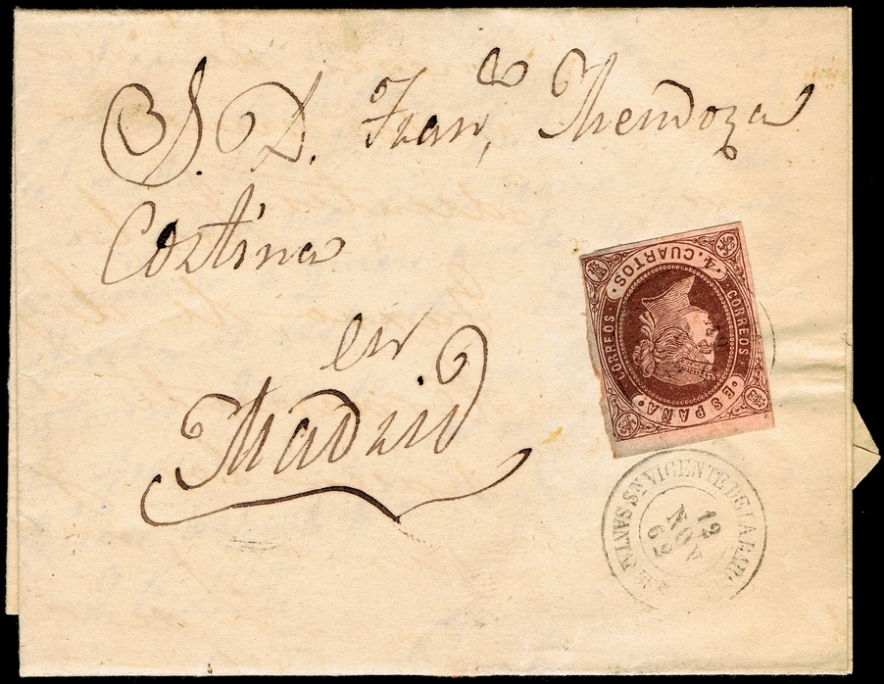 S. D. Fran,co Mendoza
Cortina
en
Madrid
4. CUARTOS.
CORREOS
CORREOS
ESPAÑA
S. VICENTE DE LA BARQ.
SANTANDER
12
NOV
62